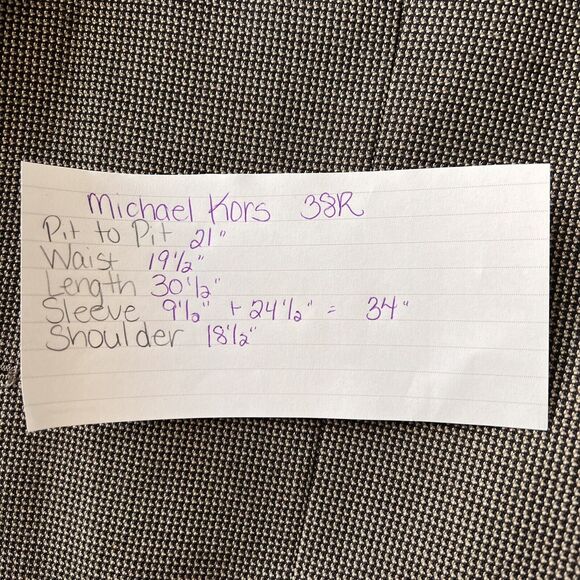 Michael Kors 38R
Pit to Pit 21"
Waist 19 1/2"
Length 30 1/2"
Sleeve 9 1/2" + 24 1/2" = 34"
Shoulder 18 1/2"